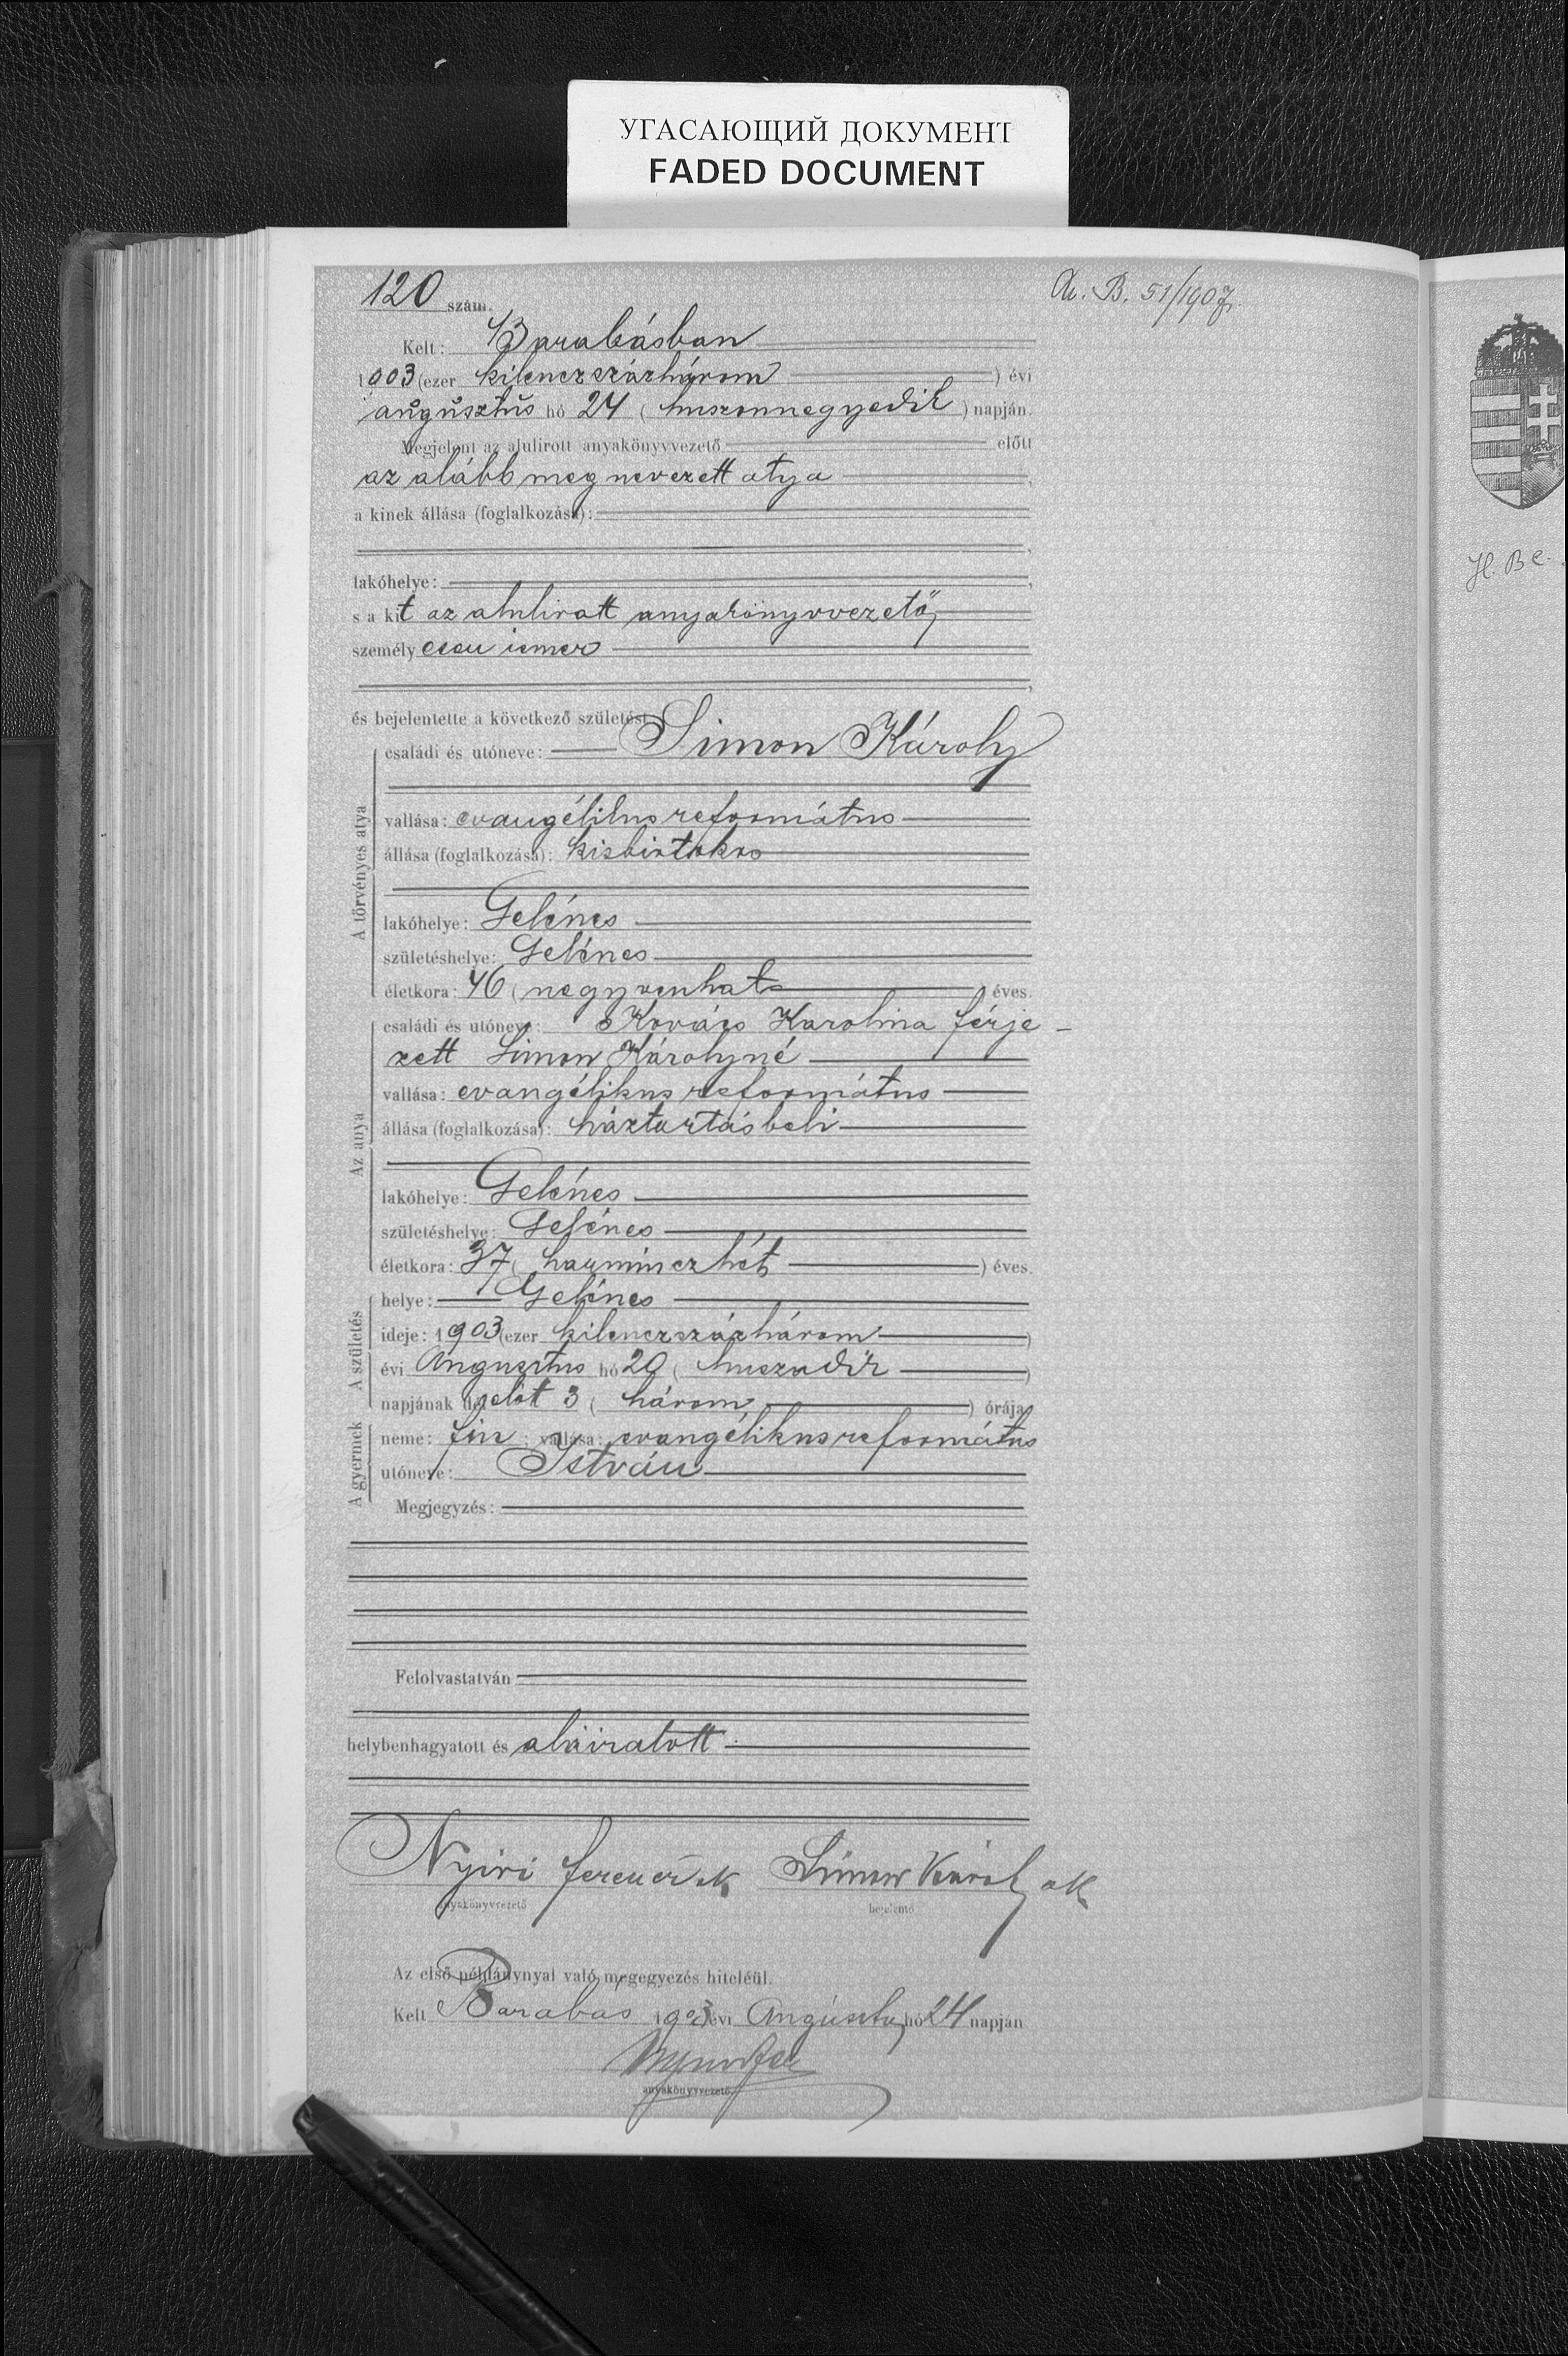 УГАСАЮЩИЙ ДОКУМЕНТ
FADED DOCUMENT
120 szám.
H. B. 51/1907.
Kelt: Barabásban
1903 (ezer kilenczszázhárom) évi
augusztus hó 24 (huszonnegyedik) napján.
Megjelent az alulirott anyakönyvvezető előtt
az alább megnevezett atya,
a kinek állása (foglalkozása):
lakóhelye:
s a kit az alulirott anyakönyvvezető,
személyesen ismer
és bejelentette a következő születést:
A törvényes atya
családi és utóneve: Simon Károly
vallása: evangélikus református
állása (foglalkozása): kisbirtokos
lakóhelye: Gelénes
születéshelye: Gelénes
életkora: 46 (negyvenhat) éves.
Az anya
családi és utóneve: Kovács Karolina férje-
zett Simon Károlyné
vallása: evangélikus református
állása (foglalkozása): háztartásbeli
lakóhelye: Gelénes
születéshelye: Gelénes
életkora: 37 (harminczhét) éves.
A születés
helye: Gelénes
ideje: 1903 (ezer kilenczszázhárom)
évi Augusztus hó 20 (huszadik)
napjának délelőt 3 (három) órája
A gyermek
neme: fiu; vallása: evangélikus református
utóneve: István
Megjegyzés:
Felolvastatván
helybenhagyatott és aláiratott
Nyiri Ferencz sk Simon Károly sk
anyakönyvvezető bejelentő
Az első példánynyal való megegyezés hiteléül.
Kelt Barabás 1903 évi Augusztus hó 24 napján
anyakönyvvezető
H. B c.